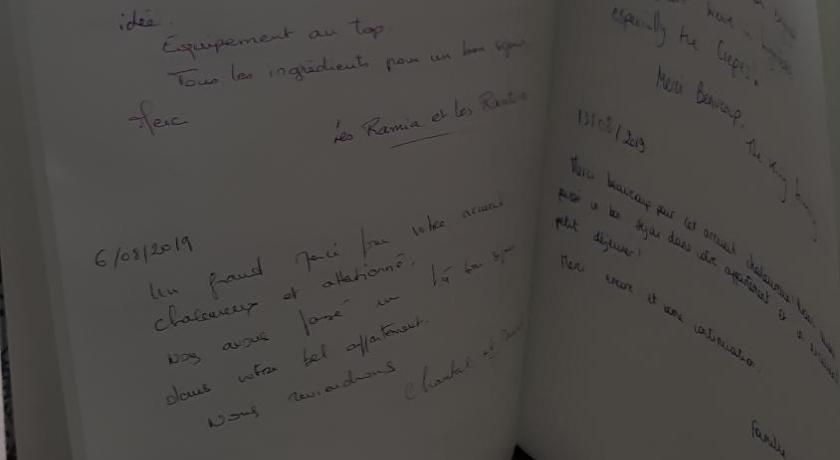 idée.
Equipement au top
Tous les ingrédients pour un bon séjour
Merc
Les Ramia et les
6/08/2019
Un grand merci pour votre accueil
chaleureux et attentionné.
Nous avons passé un bon
dans votre bel appartement.
Nous reviendrons
Chantal et
especially the Crepes.
Merci Beaucoup.
The
13/08/2019
Merci beaucoup pour cet accueil chaleureux
passé un bon séjour dans votre appartement et
petit déjeuner!
Merci encore et bonne continuation.
Famille